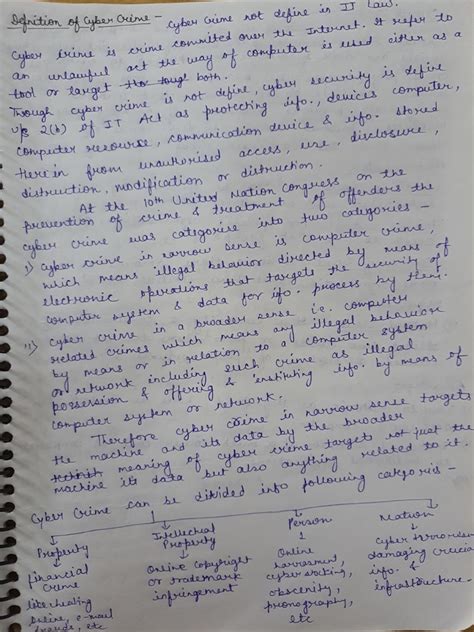 Definition of Cyber Crime - cyber crime not define in IT law.
Cyber Crime is crime commited over the Internet. It refer to
an unlawful act the way of computer is used either as a
tool or target both.
Though cyber crime is not define, cyber security is define
u/s 2(b) of IT Act as protecting info., devices computer,
computer resourse, communication device & info. stored
there in from unauthorised access, use, disclosure,
distruction, modification or distruction.
At the 10th United Nation Congress on the
prevention of crime & treatment of offenders the
cyber crime was categorise into two categories -
i) Cyber crime in narrow sense is computer crime,
which means illegal behavior directed by means of
electronic operations that targets the security of
computer system & data for info. process by them.
ii) Cyber crime in a broader sense i.e. computer
related crimes which means any illegal behaviour
by means or in relation to a computer system
or network including such crime as illegal
possession & offering & info. by means of
computer system or network.
Therefore cyber crime in narrow sense targets
the machine and its data by the broader
meaning of cyber crime targets not just the
machine its data but also anything related to it.
Cyber Crime can be divided info following categoris -
Property Intellectual Property Person Nation
financial Crime Online Copyright or trademark infringement Online harrasment, obscenity, pronography, etc cyber terrorism damaging info. & infrastructure.
online, e-mail
frauds, etc